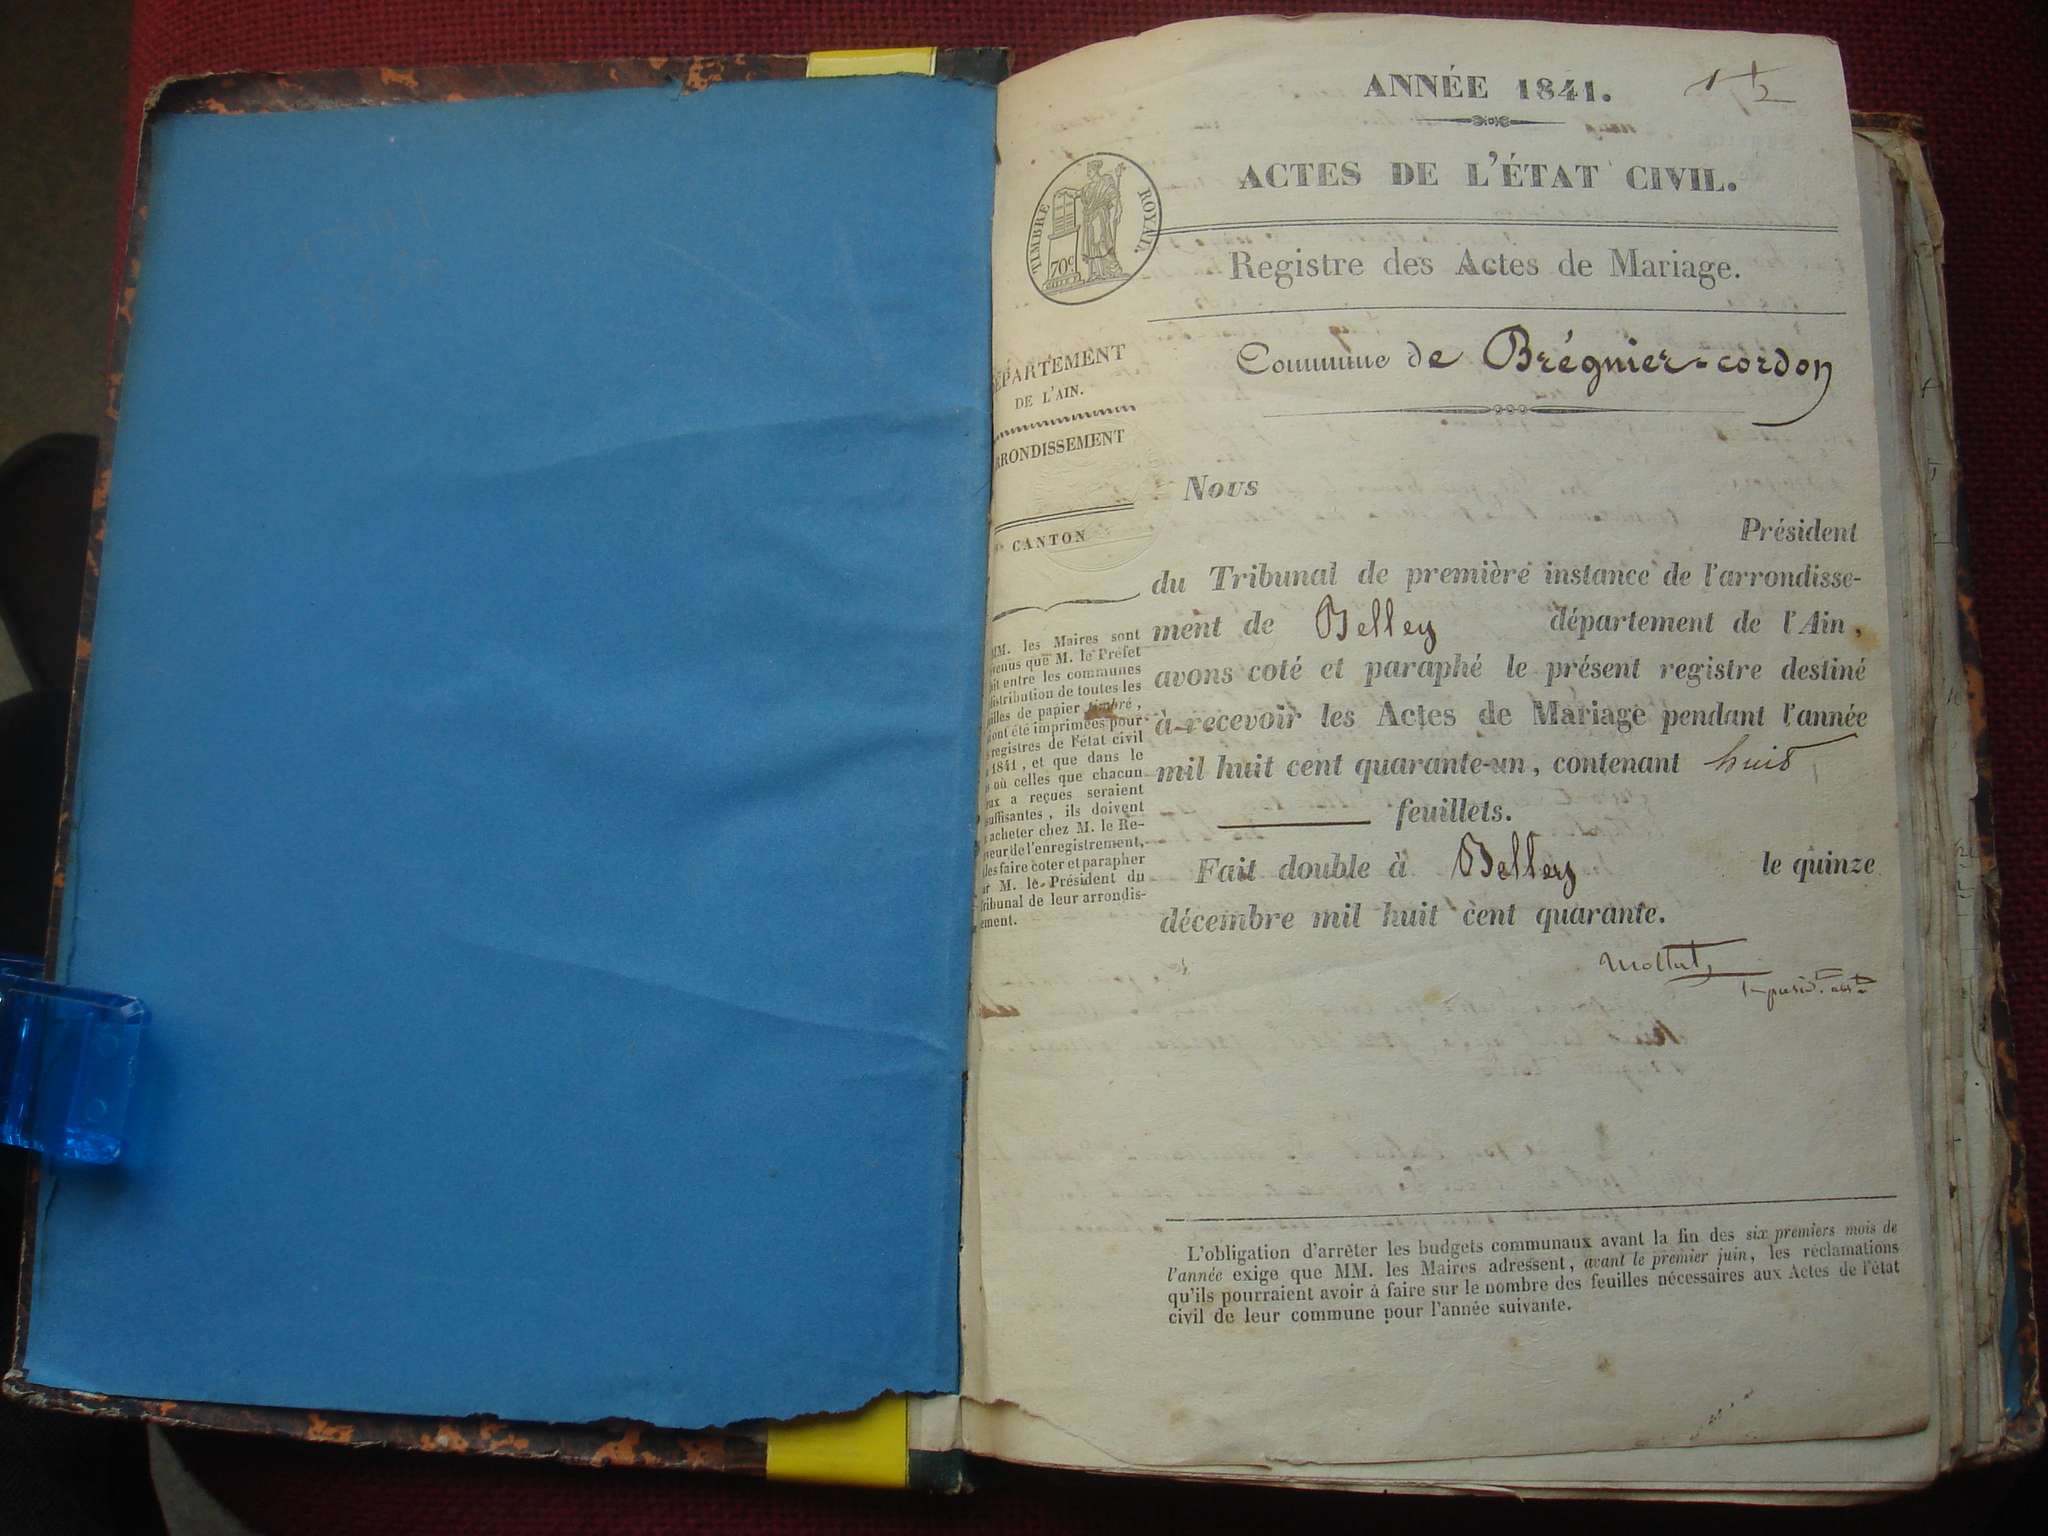 ANNÉE 1841.
1
ACTES DE L'ÉTAT CIVIL.
TIMBRE ROYAL.
70c
Registre des Actes de Mariage.
Commune de Brégnier-cordon
ÉPARTEMENT
DE L'AIN.
RRONDISSEMENT
CANTON
MM. les Maires sont
enus que M. le Préfet
ait entre les communes
distribution de toutes les
uilles de papier timbré,
ont été imprimées pour
registres de l'état civil
1841, et que dans le
s où celles que chacun
eux a reçues seraient
suffisantes, ils doivent
acheter chez M. le Re-
veur de l'enregistrement,
les faire coter et parapher
ar M. le Président du
ribunal de leur arrondis-
ement.
Nous
Président
du Tribunal de première instance de l'arrondisse-
ment de Belley département de l'Ain,
avons coté et paraphé le présent registre destiné
à recevoir les Actes de Mariage pendant l'année
mil huit cent quarante-un, contenant huit
feuillets.
Fait double à Belley le quinze
décembre mil huit cent quarante.
L'obligation d'arrêter les budgets communaux avant la fin des six premiers mois de
l'année exige que MM. les Maires adressent, avant le premier juin, les réclamations
qu'ils pourraient avoir à faire sur le nombre des feuilles nécessaires aux Actes de l'état
civil de leur commune pour l'année suivante.